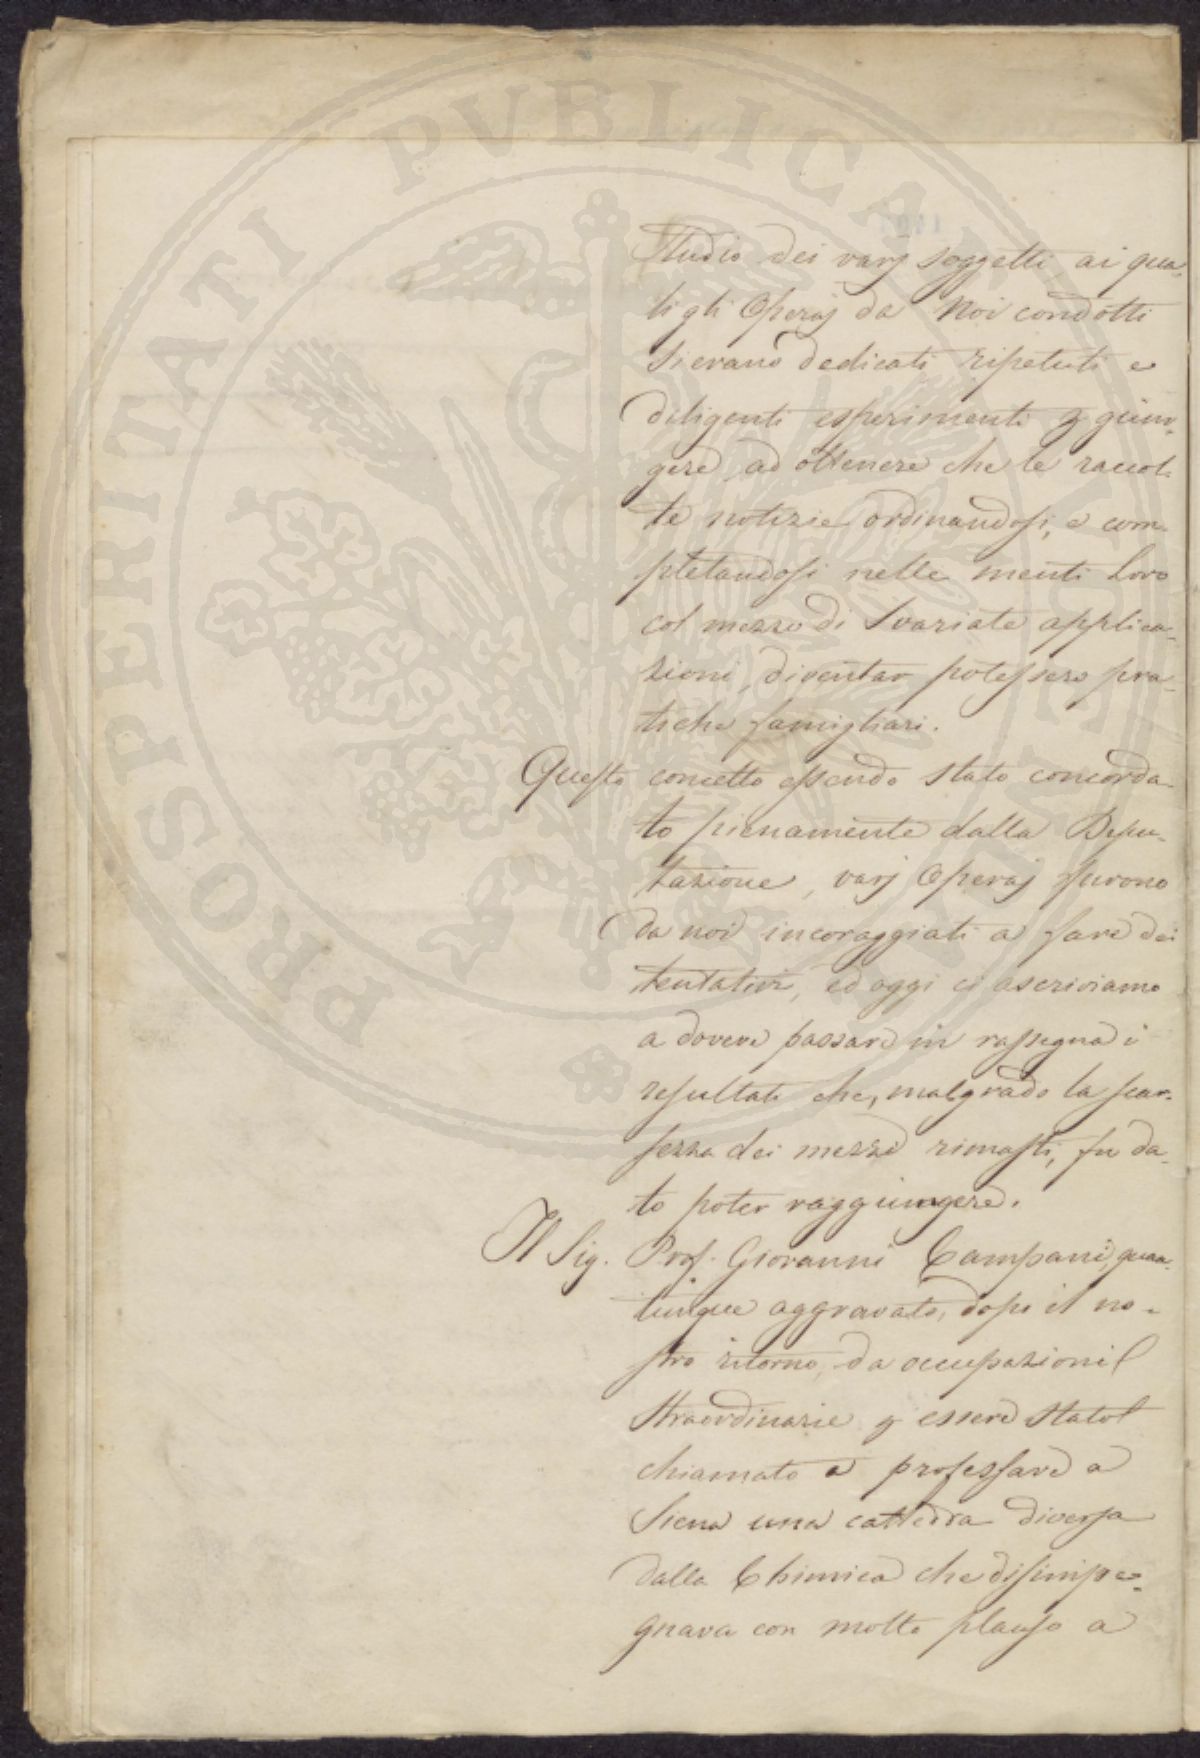 Studio dei varj soggetti ai qua-
li gli Operaj da Noi condotti
si erano dedicati ripetuti e
diligenti esperimenti p giun-
gere ad ottenere che le raccol-
te notizie ordinandosi, e com-
pletandosi nelle menti loro
col mezzo di svariate applica-
zioni, diventar potessero pra-
tiche famigliari.
Questo concetto essendo stato concorda-
to pienamente dalla Depu-
tazione, varj Operaj furono
da noi incoraggiati a fare dei
tentativi, ed oggi ci ascriviamo
a dovere passare in rassegna i
resultati che, malgrado la scar-
sezza dei mezzi rimasti, fu da-
to poter raggiungere.
Il Sig. Prof. Giovanni Campani, quan-
tunque aggravato, dopo il no-
stro ritorno, da occupazioni
straordinarie p essere stato
chiamato a professare a
Siena una cattedra diversa
dalla Chimica che disimpe-
gnava con molto plauso a
PROSPERITATI PVBLICAE